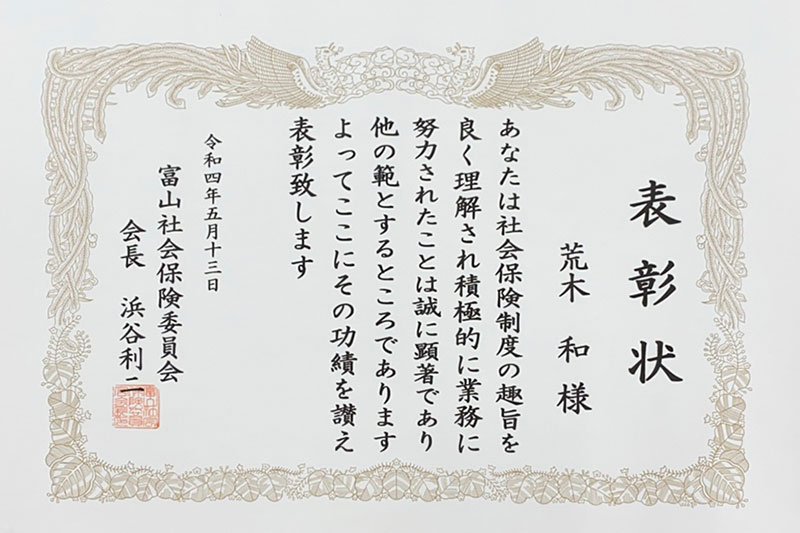 表彰状
荒木 和 様
あなたは社会保険制度の趣旨を
良く理解され積極的に業務に
努力されたことは誠に顕著であり
他の範とするところであります
よってここにその功績を讃え
表彰致します
令和四年五月十三日
富山社会保険委員会
会長 浜谷利二